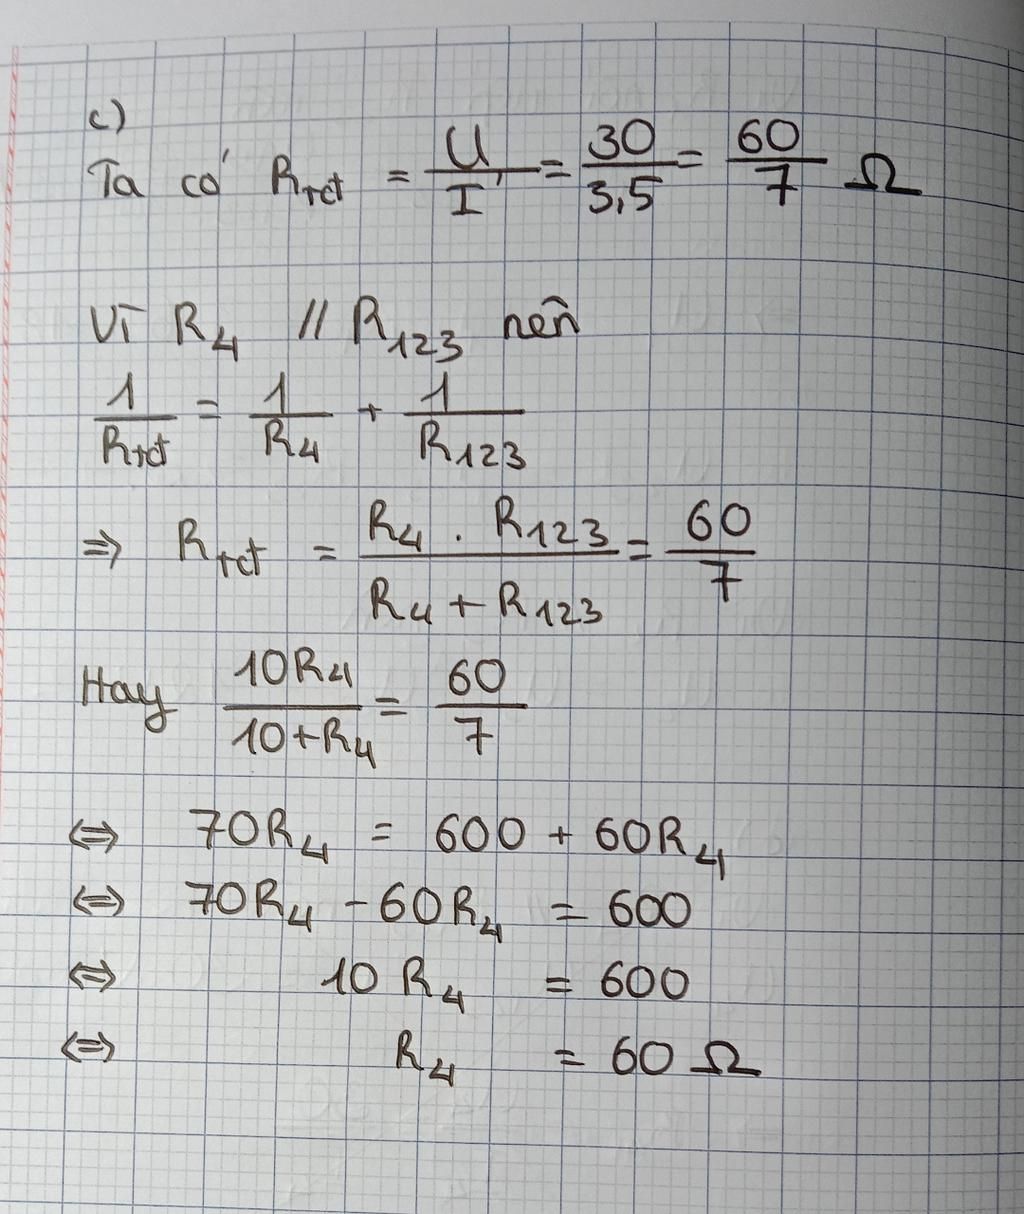 c)
Ta có R_tđ = U/I' = 30/3,5 = 60/7 Ω
Vì R₄ // R₁₂₃ nên
1/R_tđ = 1/R₄ + 1/R₁₂₃
⇒ R_tđ = (R₄ . R₁₂₃)/(R₄ + R₁₂₃) = 60/7
Hay 10R₄/(10+R₄) = 60/7
⇔ 70R₄ = 600 + 60R₄
⇔ 70R₄ - 60R₄ = 600
⇔ 10 R₄ = 600
⇔ R₄ = 60 Ω